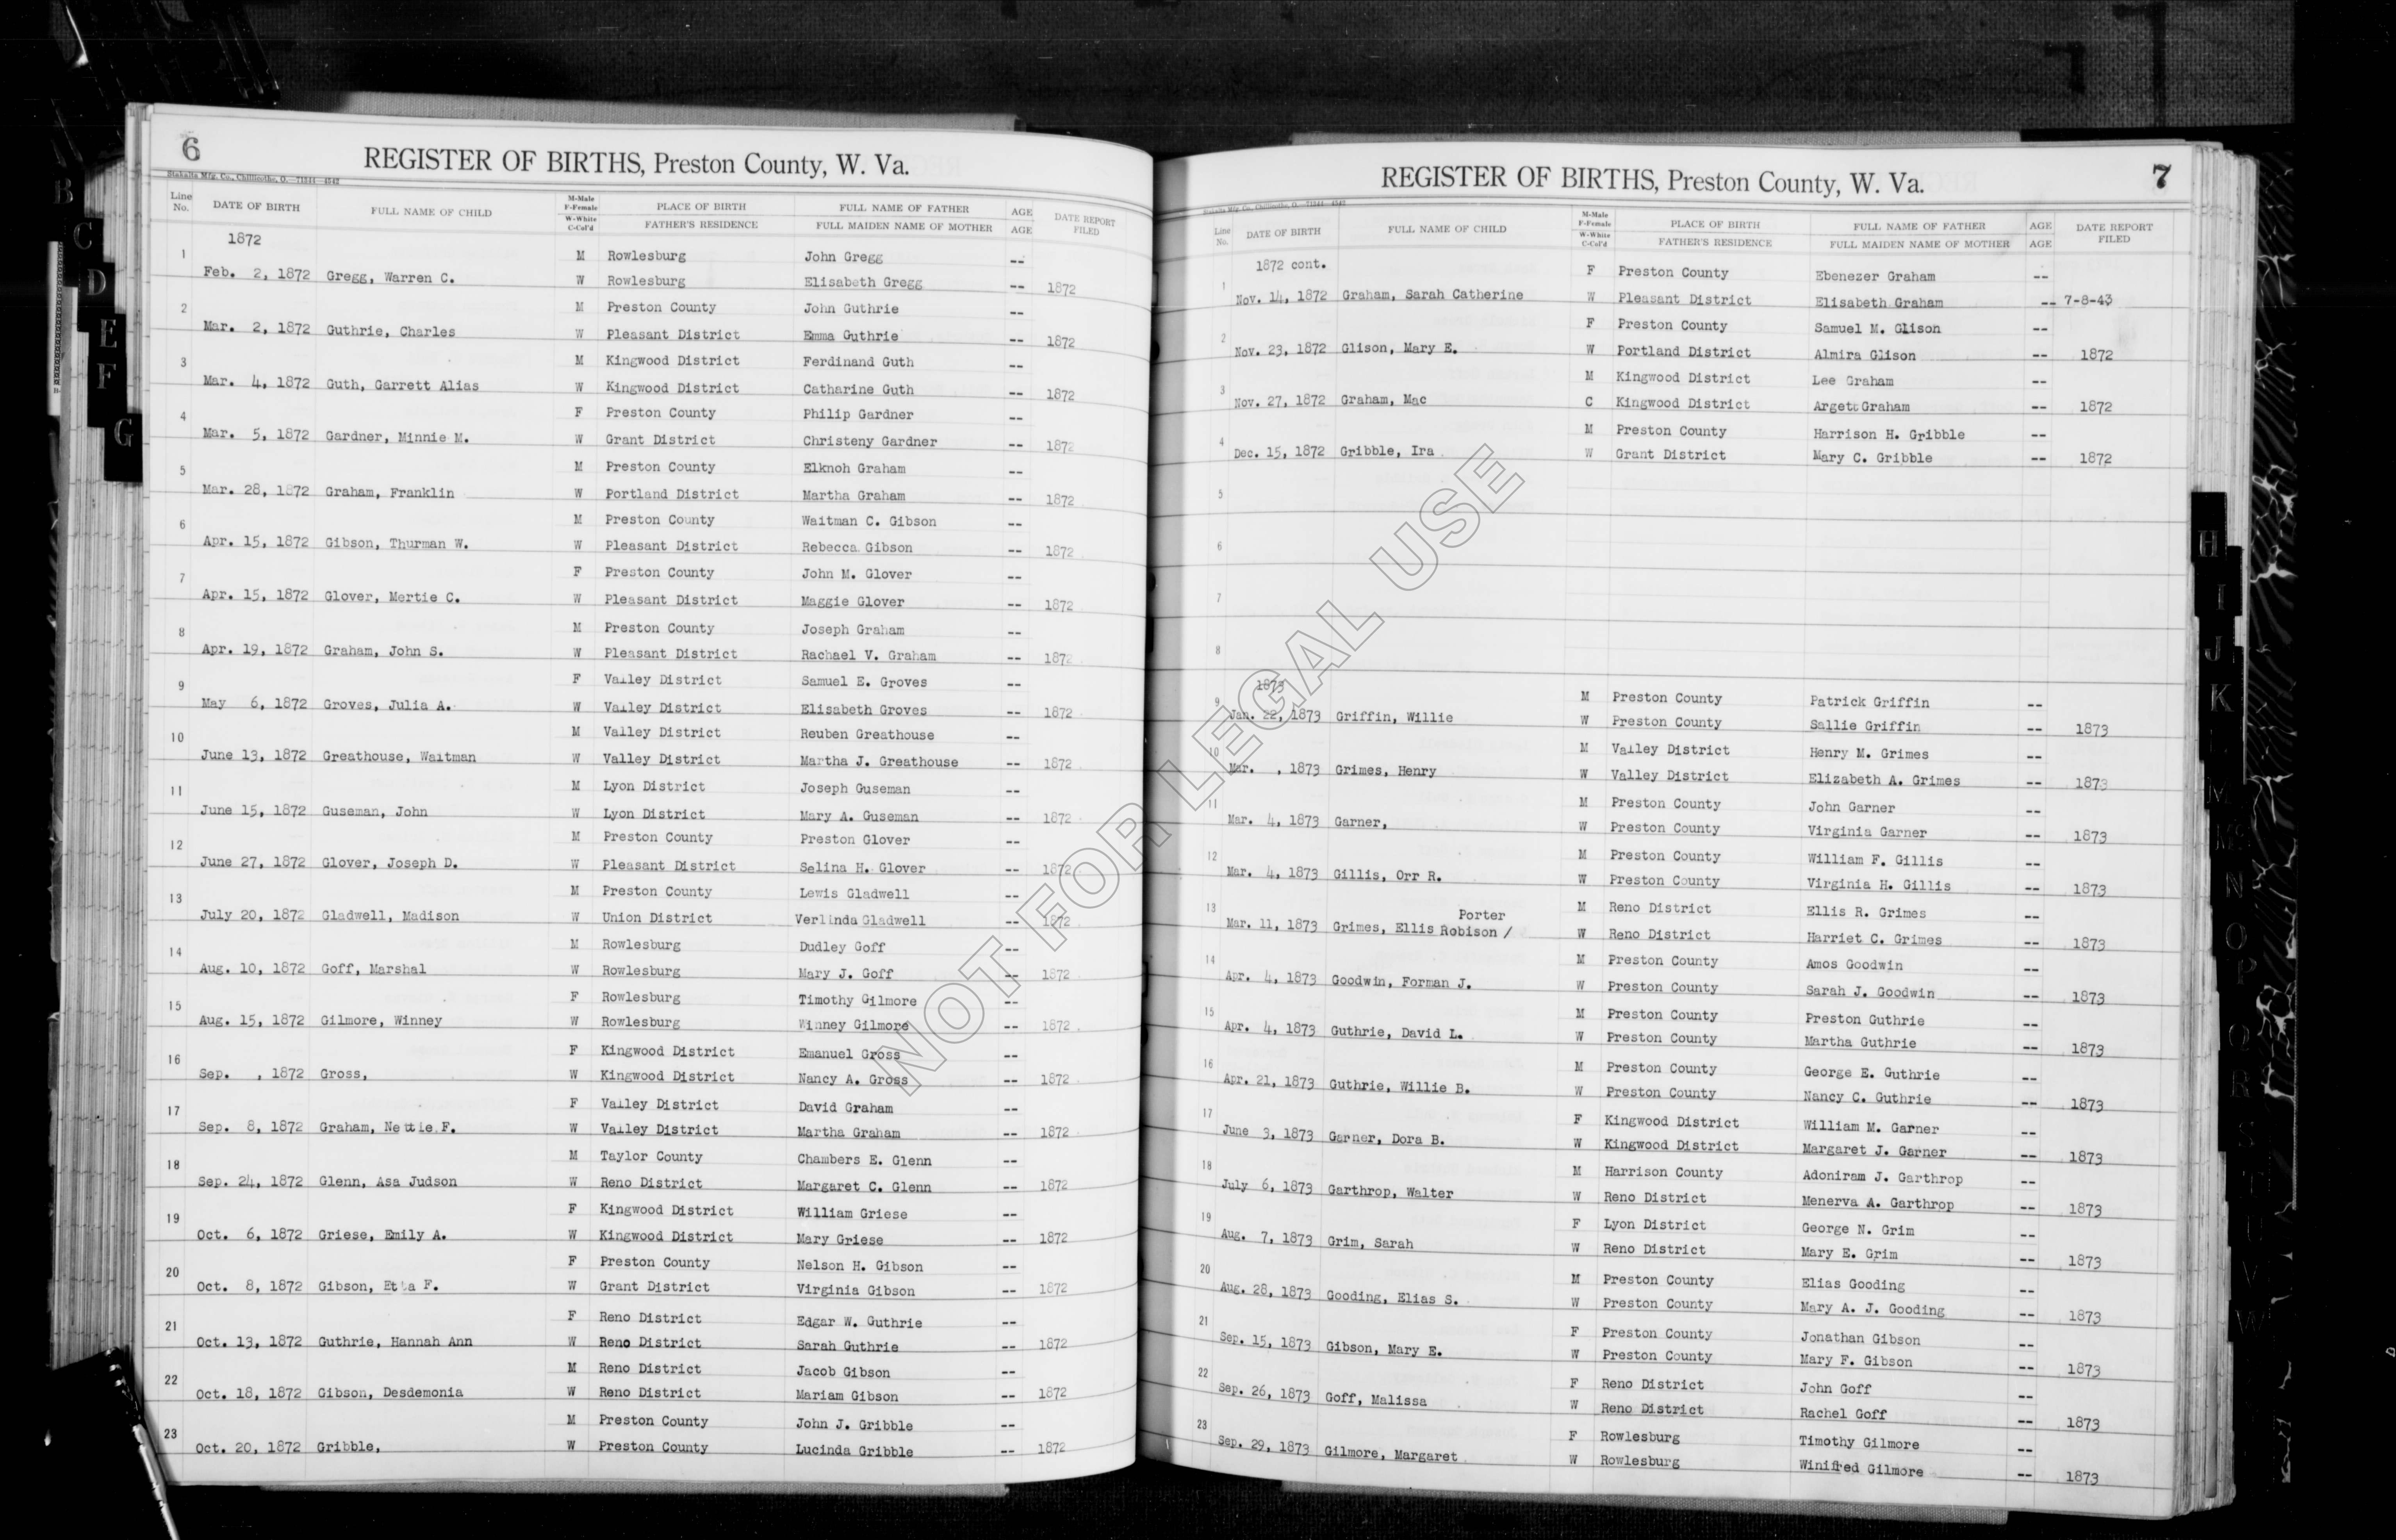 6
REGISTER OF BIRTHS, Preston County, W. Va.
Line No. DATE OF BIRTH FULL NAME OF CHILD M-Male F-Female W-White C-Col'd PLACE OF BIRTH FATHER'S RESIDENCE FULL NAME OF FATHER FULL MAIDEN NAME OF MOTHER AGE AGE DATE REPORT FILED
1872
1 M Rowlesburg John Gregg --
Feb. 2, 1872 Gregg, Warren C. W Rowlesburg Elisabeth Gregg -- 1872
2 M Preston County John Guthrie --
Mar. 2, 1872 Guthrie, Charles W Pleasant District Emma Guthrie -- 1872
3 M Kingwood District Ferdinand Guth --
Mar. 4, 1872 Guth, Garrett Alias W Kingwood District Catharine Guth -- 1872
4 F Preston County Philip Gardner --
Mar. 5, 1872 Gardner, Minnie M. W Grant District Christeny Gardner -- 1872
5 M Preston County Elknoh Graham --
Mar. 28, 1872 Graham, Franklin W Portland District Martha Graham -- 1872
6 M Preston County Waitman C. Gibson --
Apr. 15, 1872 Gibson, Thurman W. W Pleasant District Rebecca Gibson -- 1872
7 F Preston County John M. Glover --
Apr. 15, 1872 Glover, Mertie C. W Pleasant District Maggie Glover -- 1872
8 M Preston County Joseph Graham --
Apr. 19, 1872 Graham, John S. W Pleasant District Rachael V. Graham -- 1872
9 F Valley District Samuel E. Groves --
May 6, 1872 Groves, Julia A. W Valley District Elisabeth Groves -- 1872
10 M Valley District Reuben Greathouse --
June 13, 1872 Greathouse, Waitman W Valley District Martha J. Greathouse -- 1872
11 M Lyon District Joseph Guseman --
June 15, 1872 Guseman, John W Lyon District Mary A. Guseman -- 1872
12 M Preston County Preston Glover --
June 27, 1872 Glover, Joseph D. W Pleasant District Selina H. Glover -- 1872
13 M Preston County Lewis Gladwell --
July 20, 1872 Gladwell, Madison W Union District Verlinda Gladwell -- 1872
14 M Rowlesburg Dudley Goff --
Aug. 10, 1872 Goff, Marshal W Rowlesburg Mary J. Goff -- 1872
15 F Rowlesburg Timothy Gilmore --
Aug. 15, 1872 Gilmore, Winney W Rowlesburg Winney Gilmore -- 1872
16 F Kingwood District Emanuel Gross --
Sep. , 1872 Gross, W Kingwood District Nancy A. Gross -- 1872
17 F Valley District David Graham --
Sep. 8, 1872 Graham, Nettie F. W Valley District Martha Graham -- 1872
18 M Taylor County Chambers E. Glenn --
Sep. 24, 1872 Glenn, Asa Judson W Reno District Margaret C. Glenn -- 1872
19 F Kingwood District William Griese --
Oct. 6, 1872 Griese, Emily A. W Kingwood District Mary Griese -- 1872
20 F Preston County Nelson H. Gibson --
Oct. 8, 1872 Gibson, Etta F. W Grant District Virginia Gibson -- 1872
21 F Reno District Edgar W. Guthrie --
Oct. 13, 1872 Guthrie, Hannah Ann W Reno District Sarah Guthrie -- 1872
22 M Reno District Jacob Gibson --
Oct. 18, 1872 Gibson, Desdemonia W Reno District Mariam Gibson -- 1872
23 M Preston County John J. Gribble --
Oct. 20, 1872 Gribble, W Preston County Lucinda Gribble -- 1872
REGISTER OF BIRTHS, Preston County, W. Va.
7
Line No. DATE OF BIRTH FULL NAME OF CHILD M-Male F-Female W-White C-Col'd PLACE OF BIRTH FATHER'S RESIDENCE FULL NAME OF FATHER FULL MAIDEN NAME OF MOTHER AGE AGE DATE REPORT FILED
1872 cont.
1 F Preston County Ebenezer Graham --
Nov. 14, 1872 Graham, Sarah Catherine W Pleasant District Elisabeth Graham -- 7-8-43
2 F Preston County Samuel M. Glison --
Nov. 23, 1872 Glison, Mary E. W Portland District Almira Glison -- 1872
3 M Kingwood District Lee Graham --
Nov. 27, 1872 Graham, Mac C Kingwood District Argett Graham -- 1872
4 M Preston County Harrison H. Gribble --
Dec. 15, 1872 Gribble, Ira W Grant District Mary C. Gribble -- 1872
5
6
7
8
1873
9 M Preston County Patrick Griffin --
Jan. 22, 1873 Griffin, Willie W Preston County Sallie Griffin -- 1873
10 M Valley District Henry M. Grimes --
Mar. , 1873 Grimes, Henry W Valley District Elizabeth A. Grimes -- 1873
11 M Preston County John Garner --
Mar. 4, 1873 Garner, W Preston County Virginia Garner -- 1873
12 M Preston County William F. Gillis --
Mar. 4, 1873 Gillis, Orr R. W Preston County Virginia H. Gillis -- 1873
13 Porter M Reno District Ellis R. Grimes --
Mar. 11, 1873 Grimes, Ellis Robison / W Reno District Harriet C. Grimes -- 1873
14 M Preston County Amos Goodwin --
Apr. 4, 1873 Goodwin, Forman J. W Preston County Sarah J. Goodwin -- 1873
15 M Preston County Preston Guthrie --
Apr. 4, 1873 Guthrie, David L. W Preston County Martha Guthrie -- 1873
16 M Preston County George E. Guthrie --
Apr. 21, 1873 Guthrie, Willie B. W Preston County Nancy C. Guthrie -- 1873
17 F Kingwood District William M. Garner --
June 3, 1873 Garner, Dora B. W Kingwood District Margaret J. Garner -- 1873
18 M Harrison County Adoniram J. Garthrop --
July 6, 1873 Garthrop, Walter W Reno District Menerva A. Garthrop -- 1873
19 F Lyon District George N. Grim --
Aug. 7, 1873 Grim, Sarah W Reno District Mary E. Grim -- 1873
20 M Preston County Elias Gooding --
Aug. 28, 1873 Gooding, Elias S. W Preston County Mary A. J. Gooding -- 1873
21 F Preston County Jonathan Gibson --
Sep. 15, 1873 Gibson, Mary E. W Preston County Mary F. Gibson -- 1873
22 F Reno District John Goff --
Sep. 26, 1873 Goff, Malissa W Reno District Rachel Goff -- 1873
23 F Rowlesburg Timothy Gilmore --
Sep. 29, 1873 Gilmore, Margaret W Rowlesburg Winifred Gilmore -- 1873
NOT FOR LEGAL USE
B
C
D
E
F
G
H
I
J
K